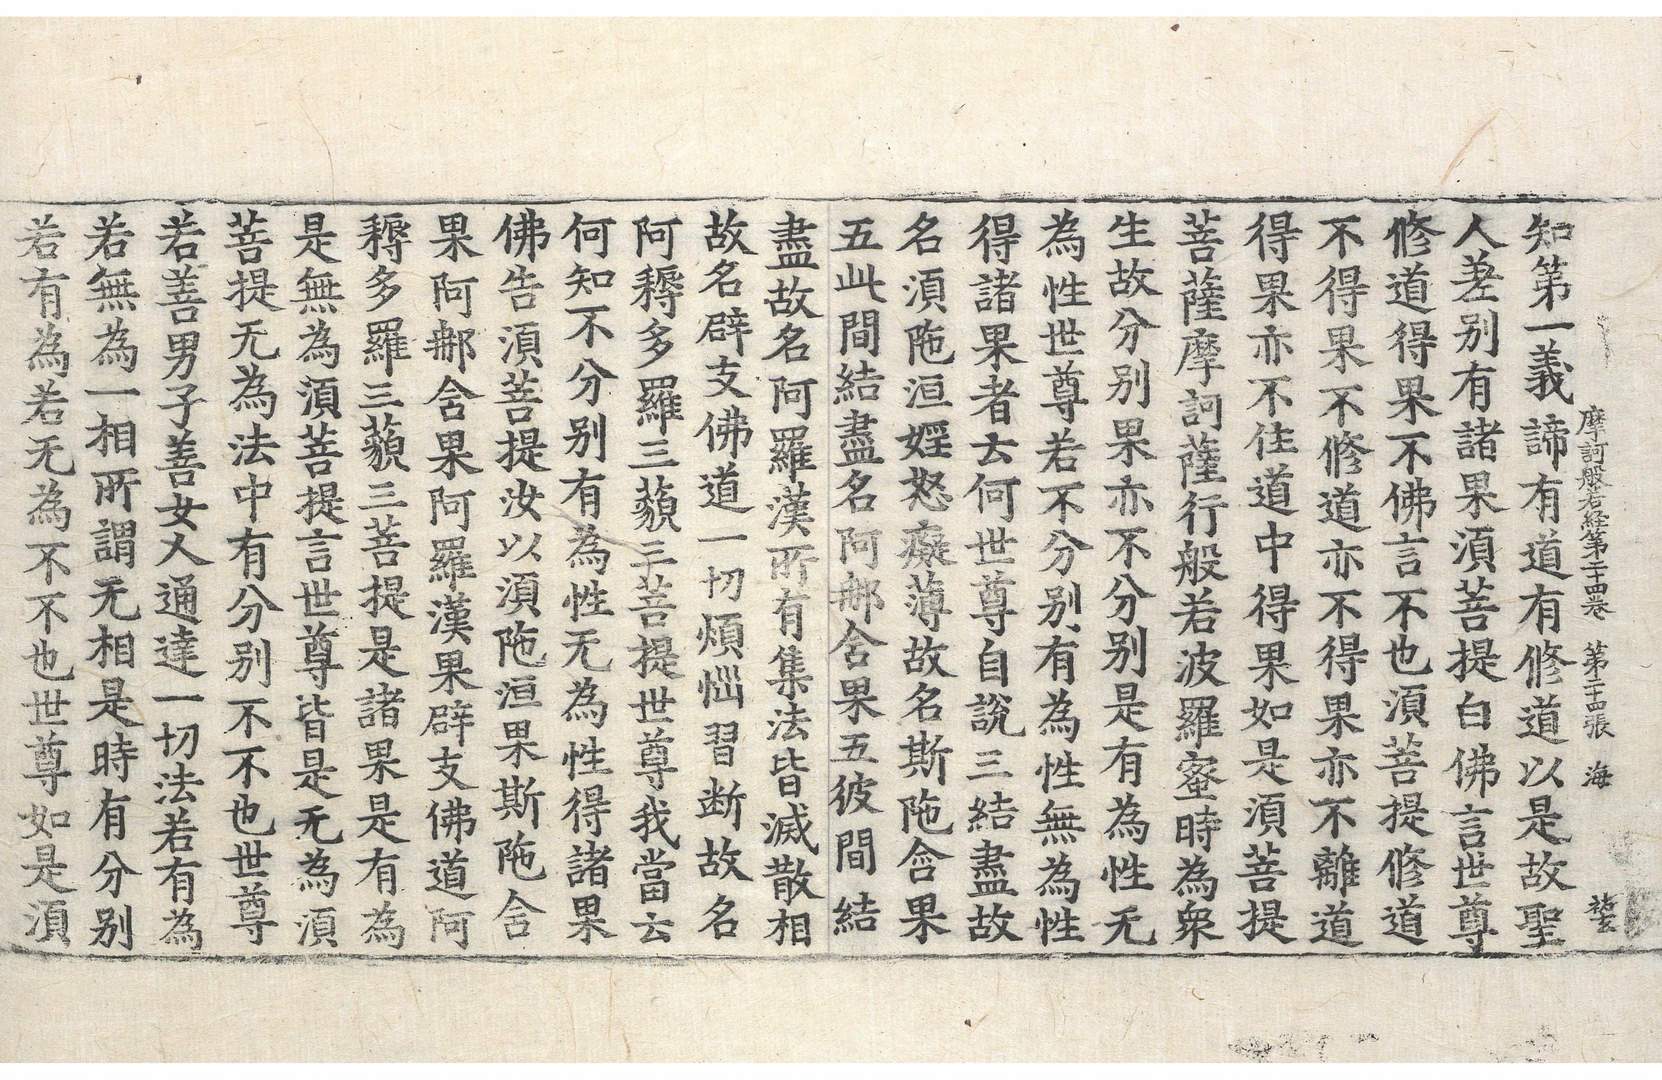 摩訶般若経第二十四卷 第二十四張 海
知第一義諦有道有修道以是故聖
人差别有諸果湏菩提白佛言世尊
修道得果不佛言不也湏菩提修道
不得果不修道亦不得果亦不離道
得果亦不住道中得果如是湏菩提
菩薩摩訶薩行般若波羅蜜時為衆
生故分别果亦不分别是有為性无
為性世尊若不分别有為性無為性
得諸果者云何世尊自說三結盡故
名湏陁洹婬怒癡薄故名斯陁含果
五此間結盡名阿那含果五彼間結
盡故名阿羅漢所有集法皆滅散相
故名辟支佛道一切煩惱習断故名
阿耨多羅三藐三菩提世尊我當云
何知不分别有為性无為性得諸果
佛告湏菩提汝以湏陁洹果斯陁含
果阿那含果阿羅漢果辟支佛道阿
耨多羅三藐三菩提是諸果是有為
是無為湏菩提言世尊皆是无為湏
菩提无為法中有分别不不也世尊
若善男子善女人通達一切法若有為
若無為一相所謂无相是時有分别
若有為若无為不不也世尊如是湏